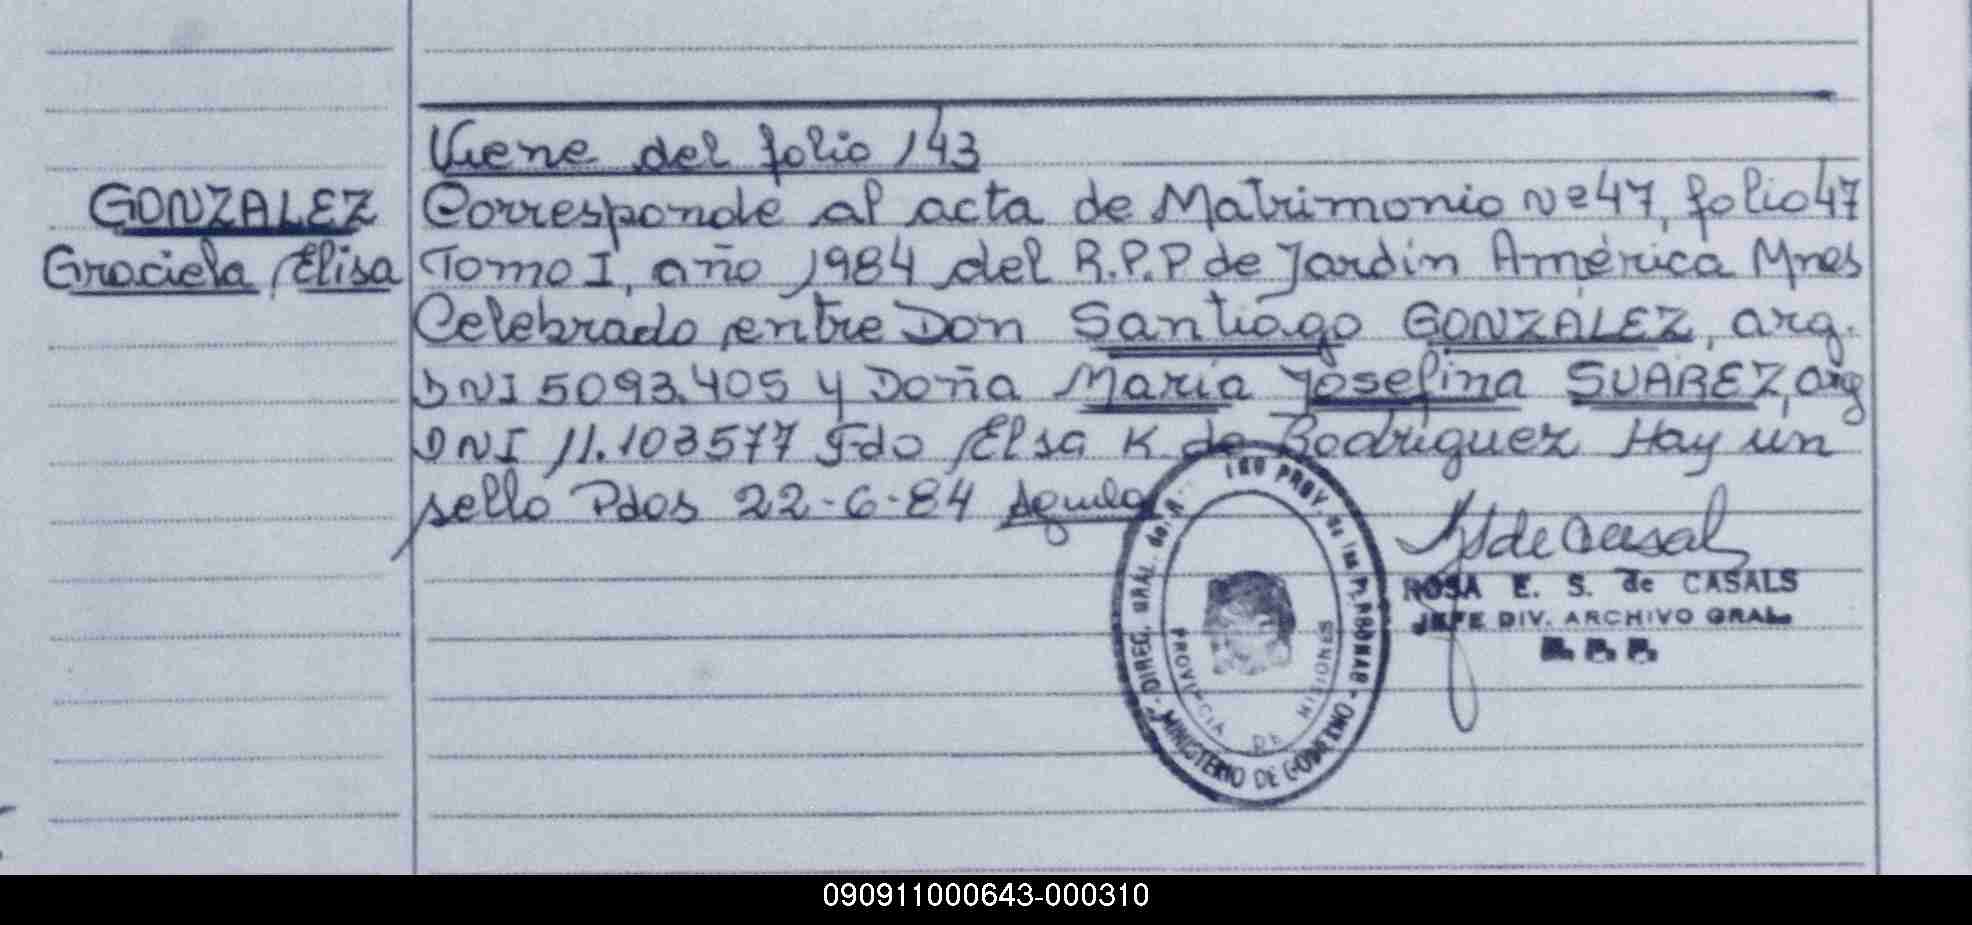 Viene del folio 143
GONZALEZ Corresponde al acta de Matrimonio Nº 47, folio 47
Graciela Elisa Tomo I, año 1984 del R.P.P de Jardín América Mnes
Celebrado entre Don Santiago GONZÁLEZ, arg.
DNI 5093.405 y Doña María Josefina SUAREZ, arg
DNI 11.103577 Fdo Elsa K de Rodríguez Hay un
sello Pdos 22-6-84
de Casals
ROSA E. S. de CASALS
JEFE DIV. ARCHIVO GRAL
R. P. P.
DIREC. GRAL. del R. PROV. de las PERSONAS - MINISTERIO DE GOBIERNO
PROVINCIA DE MISIONES
090911000643-000310